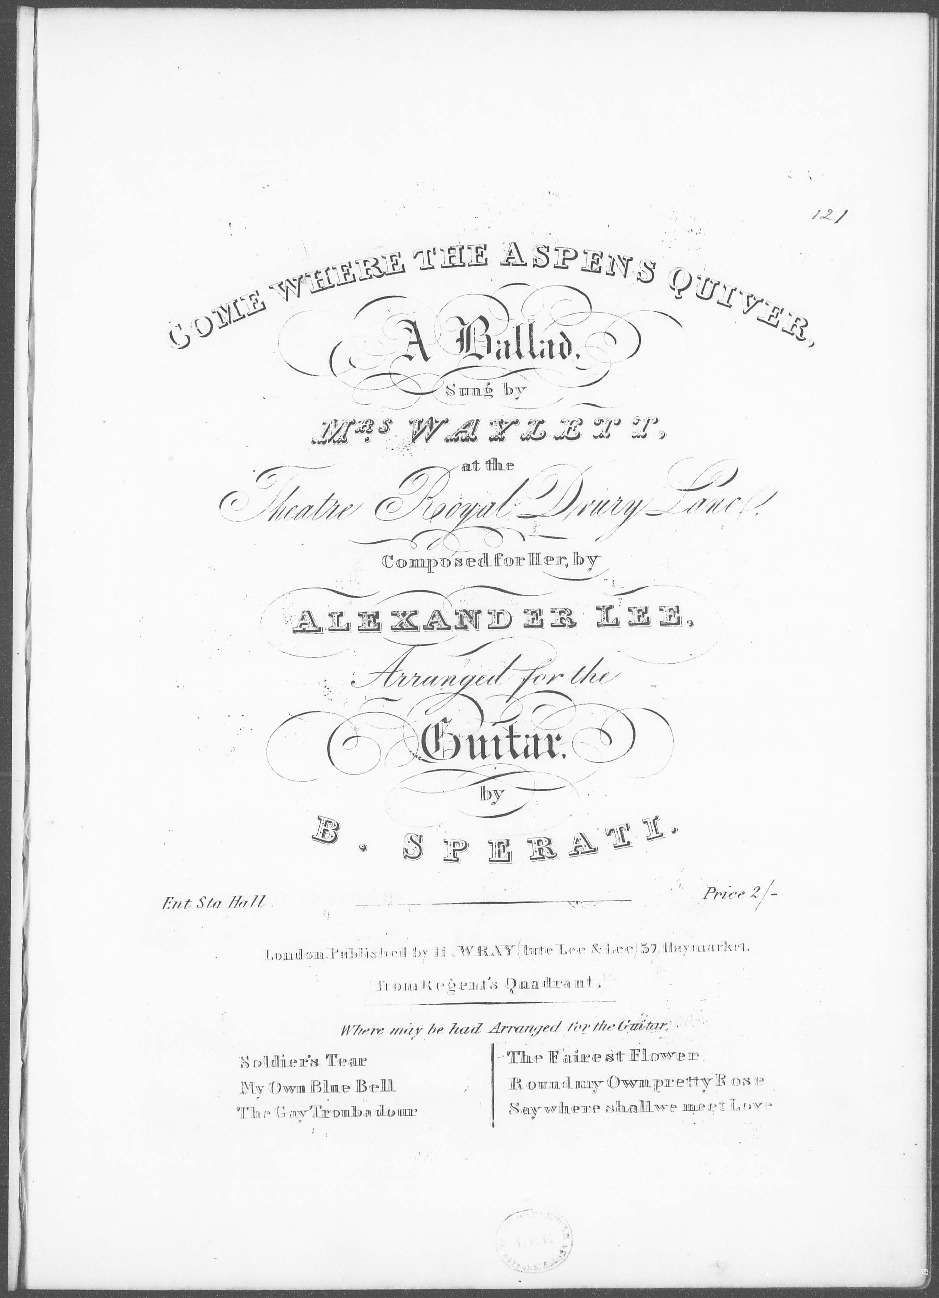 121
COME WHERE THE ASPENS QUIVER,
A Ballad,
Sung by
Mrs WAYLETT,
at the
Theatre Royal Drury Lane.
Composed for Her, by
ALEXANDER LEE,
Arranged for the
Guitar,
by
B. SPERATI.
Ent Sta Hall.
Price 2/-
London Published by H. WRAY (late Lee & Lee) 37, Haymarket,
(from Regent's Quadrant,)
Where may be had Arranged for the Guitar,
Soldier's Tear
My Own Blue Bell
The Gay Troubadour
The Fairest Flower
Round my Own pretty Rose
Say where shall we meet Love